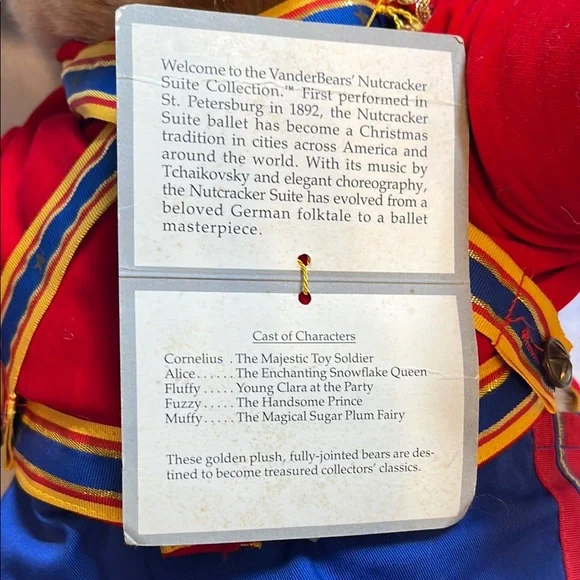 Welcome to the VanderBears' Nutcracker
Suite Collection.™ First performed in
St. Petersburg in 1892, the Nutcracker
Suite ballet has become a Christmas
tradition in cities across America and
around the world. With its music by
Tchaikovsky and elegant choreography,
the Nutcracker Suite has evolved from a
beloved German folktale to a ballet
masterpiece.
Cast of Characters
Cornelius . The Majestic Toy Soldier
Alice...... The Enchanting Snowflake Queen
Fluffy..... Young Clara at the Party
Fuzzy..... The Handsome Prince
Muffy..... The Magical Sugar Plum Fairy
These golden plush, fully-jointed bears are des-
tined to become treasured collectors' classics.